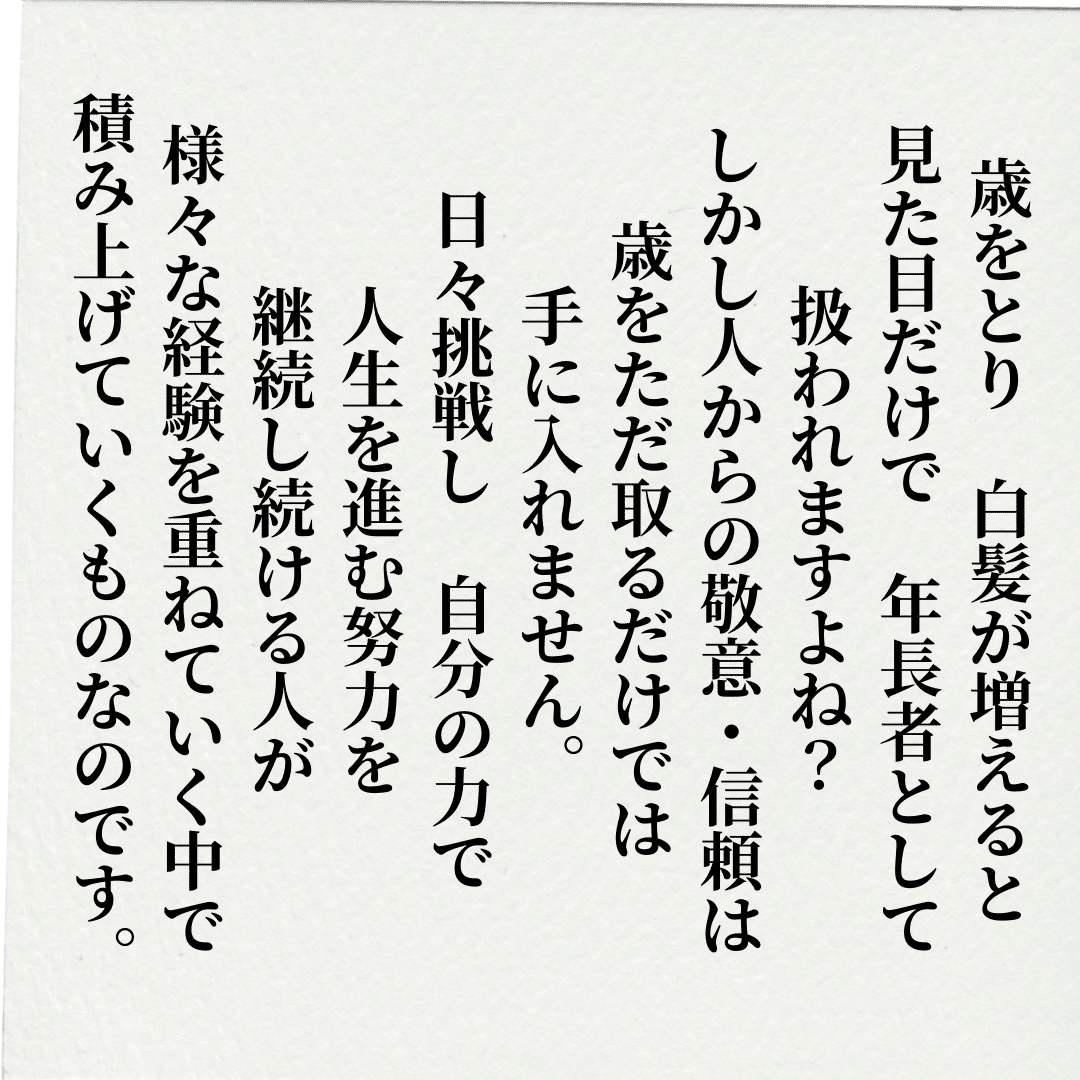 歳をとり　白髪が増えると
見た目だけで　年長者として
扱われますよね？
しかし人からの敬意・信頼は
歳をただ取るだけでは
手に入れません。
日々挑戦し　自分の力で
人生を進む努力を
継続し続ける人が
様々な経験を重ねていく中で
積み上げていくものなのです。